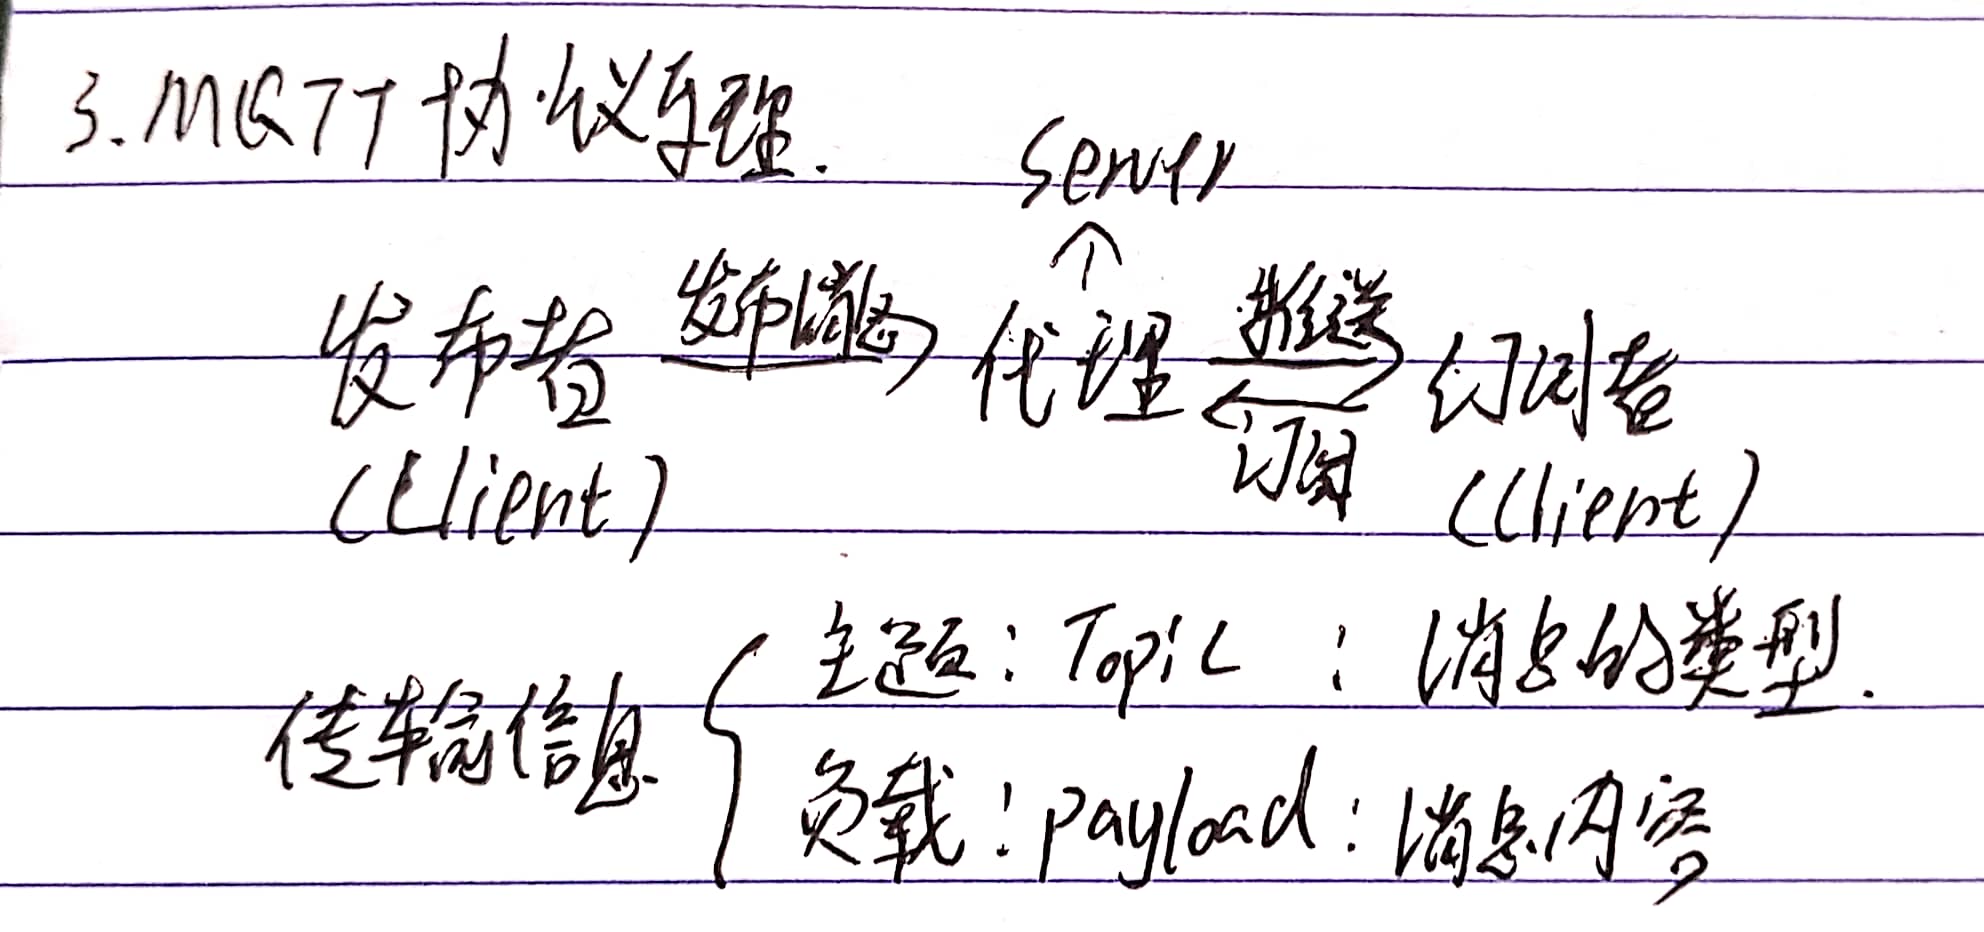 3. MQTT 协议原理.
Server
↑
发布者 发布消息 代理 推送 订阅者
订阅
(Client) (Client)
传输信息 { 主题: Topic : 消息的类型.
负载: payload: 消息内容